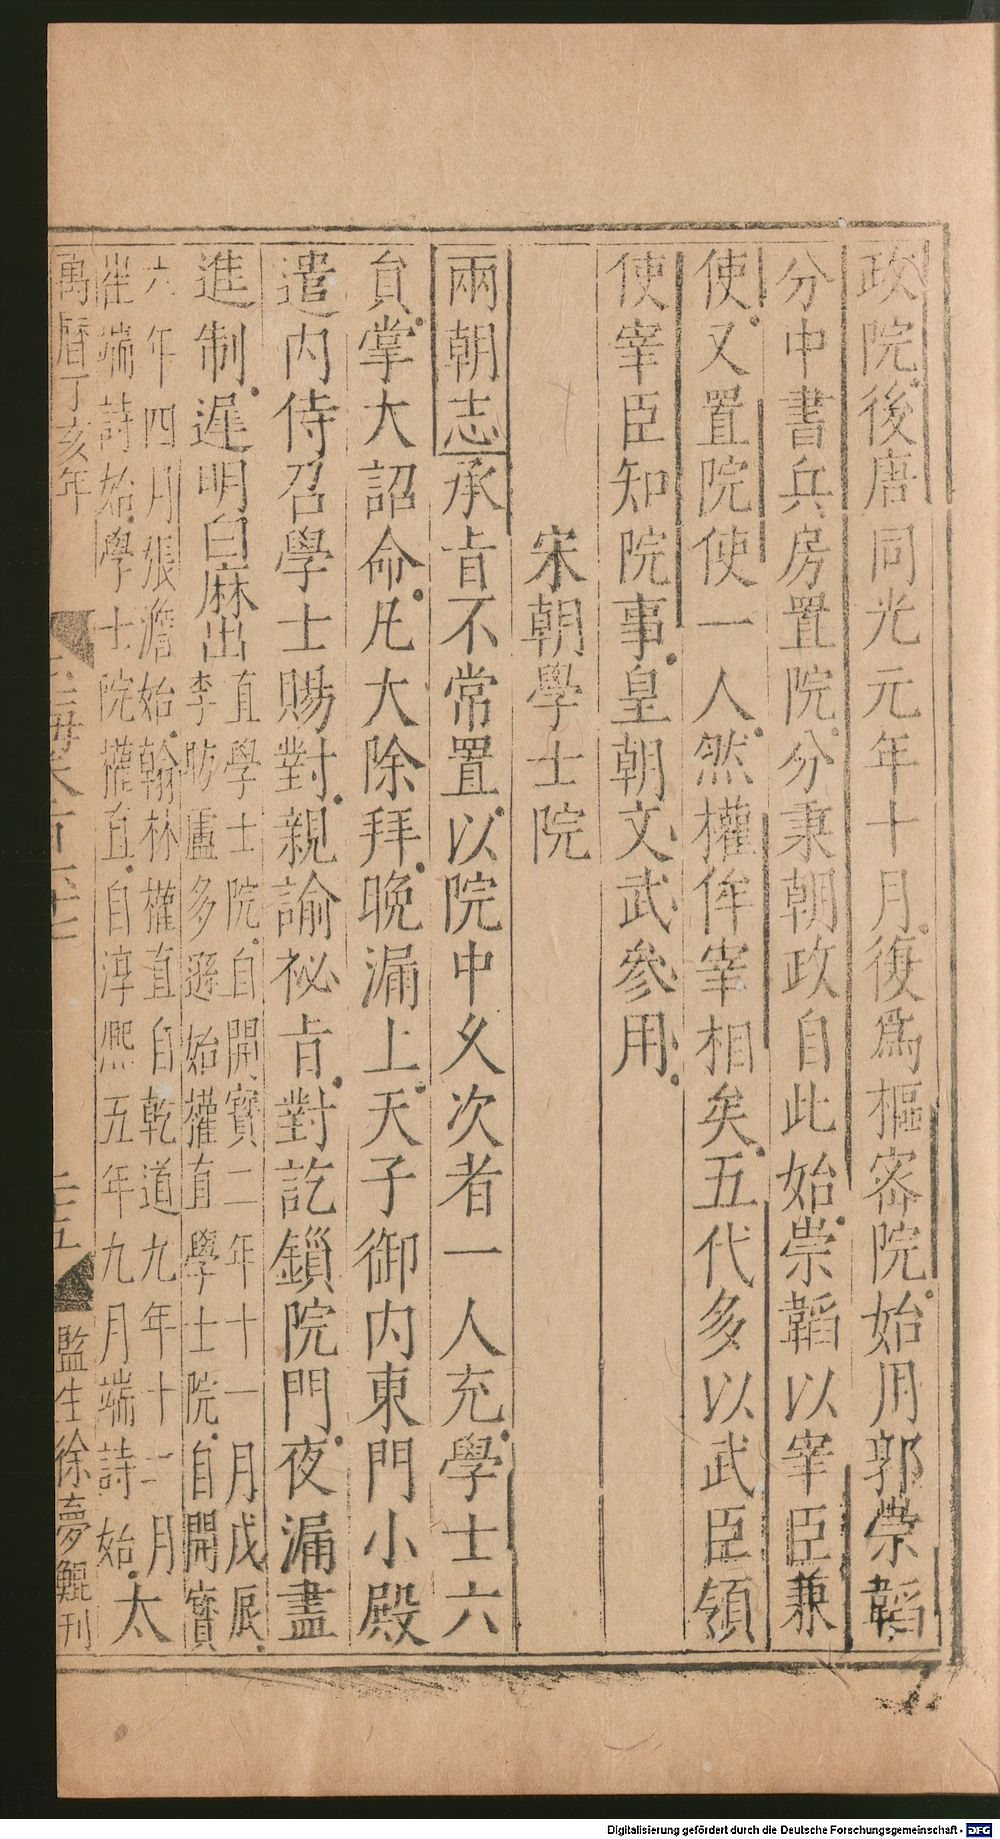 政院後唐同光元年十月復為樞密院始用郭崇韜
分中書兵房置院分秉朝政自此始崇韜以宰臣兼
使又置院使一人然權侔宰相矣五代多以武臣領
使宰臣知院事皇朝文武參用
宋朝學士院
兩朝志承㫖不常置以院中久次者一人充學士六
貟掌大詔命凡大除拜晚漏上天子御内東門小殿
遣内侍召學士賜對親諭祕㫖對訖鎻院門夜漏盡
進制遲明白麻出直學士院自開寶二年十一月戊辰
李昉盧多遜始權直學士院自開寶
六年四月張澹始翰林權直自乾道九年十二月
崔端詩始學士院權直自淳熙五年九月端詩始太
萬曆丁亥年
監生徐夢鯤刊
Digitalisierung gefördert durch die Deutsche Forschungsgemeinschaft - DFG